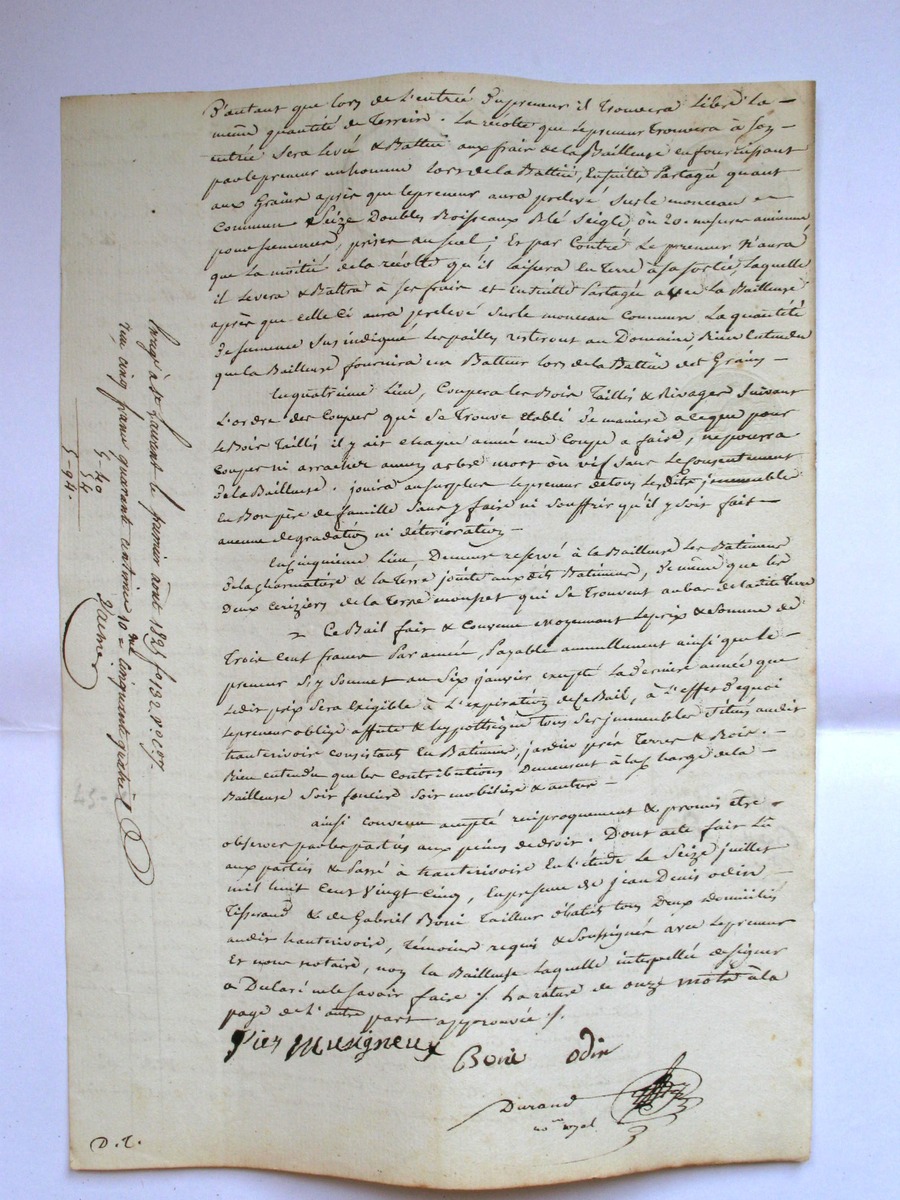 D'autant que lors de l'entrée du preneur il trouvera libre la -
même quantité de terrein. La récolte que le preneur trouvera à son -
entrée sera levée & battue aux frais de la Bailleuse en fournissant
par le preneur un homme lors de la battue, Ensuitte Partagée quant
aux Grains après que le preneur aura prelevé sur le monceau -
commun Seize Doubles Boisseaux Blé Seigle ou 20. mesures ancienne
pour semences, prises au seuil; Et par Contre Le preneur n'aura
que la moitié de la récolte qu'il laissera En Terre à sa sortie, Laquelle
il Levera & Battra à ses frais et Ensuitte Partagée avec La Bailleuse
après que celle ci aura prelevé Sur le monceau commun La quantité
de semence sus indiqué Les pailles resteront au Domaine, Bien Entendu
que la Bailleuse fournira un Batteur lors de la Battue des Grains -
En quatrieme Lieu, Coupera les Bois Taillis & Rivages Suivant
L'ordre des Coupes qui se Trouve établi De manière a ce que pour
le Bois Taillis il y ait chaque année une Coupe a faire, ne pourra
couper ni arracher aucun arbre mort ou vif sans le Consentement
de la Bailleuse. jouira au surplus le preneur de tous les dits immeubles
En Bon père de famille Sans y faire ni souffrir qu'il y soit fait -
aucune degradation ni déterioration -
En Cinquieme Lieu, Demeure reservé à la Bailleuse les Batiments
de la & la Terre jointe aux dits Batiments, De même que les
Deux Cerisiers de la Terre qui se Trouvent au bas de la dite Terre
Ce Bail fait & Convenu moyennant le prix & Somme de
Trois Cent francs Par année, Payable annuellement ainsi que le -
preneur s'y Soumet au Six janvier excepté la derniere année que
Ledit prix sera Exigible à L'expiration de Ce Bail, à L'effet de quoi
Le preneur oblige affecte & hypothèque tous ses immeubles Situés audit
hauterivoire consistant En Batiments, jardin prés Terres & Bois. -
Bien entendu que les Contributions Demeurent à la Charge de la -
Bailleuse Soit foncière Soit mobilière & autres -
ainsi convenu accepté reciproquement & promis être -
observer par les parties aux peines de droit. Dont acte fait Lû
aux parties & Passé à hauterivoire En l'étude Le Seize juillet
mil huit Cent Vingt Cinq, En presence de jean Denis odin -
Tisserand & de Gabriel Boni Tailleur d'habits tous Deux domiciliés
audit hauterivoire, témoins requis & Soussignés avec le preneur
Et nous notaire, non la Bailleuse Laquelle interpellée de signer
a Declaré ne le Savoir faire ./. La rature de onze mots à la
page de l'autre part approuvée ./.
Boni odin
Durand
Enreg.é à St Laurent le premier aout 1825 f.o 132 R.o C. 7.
reçu cinq francs quarante centimes 10.me Cinquante quatre C
5-40
54
5-94.
45-
D. T.